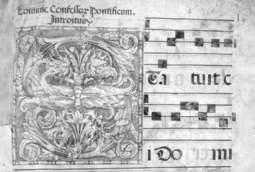 Comune Confessor Pontificum.
Introitus.
S
ta tuit e
i Do mi